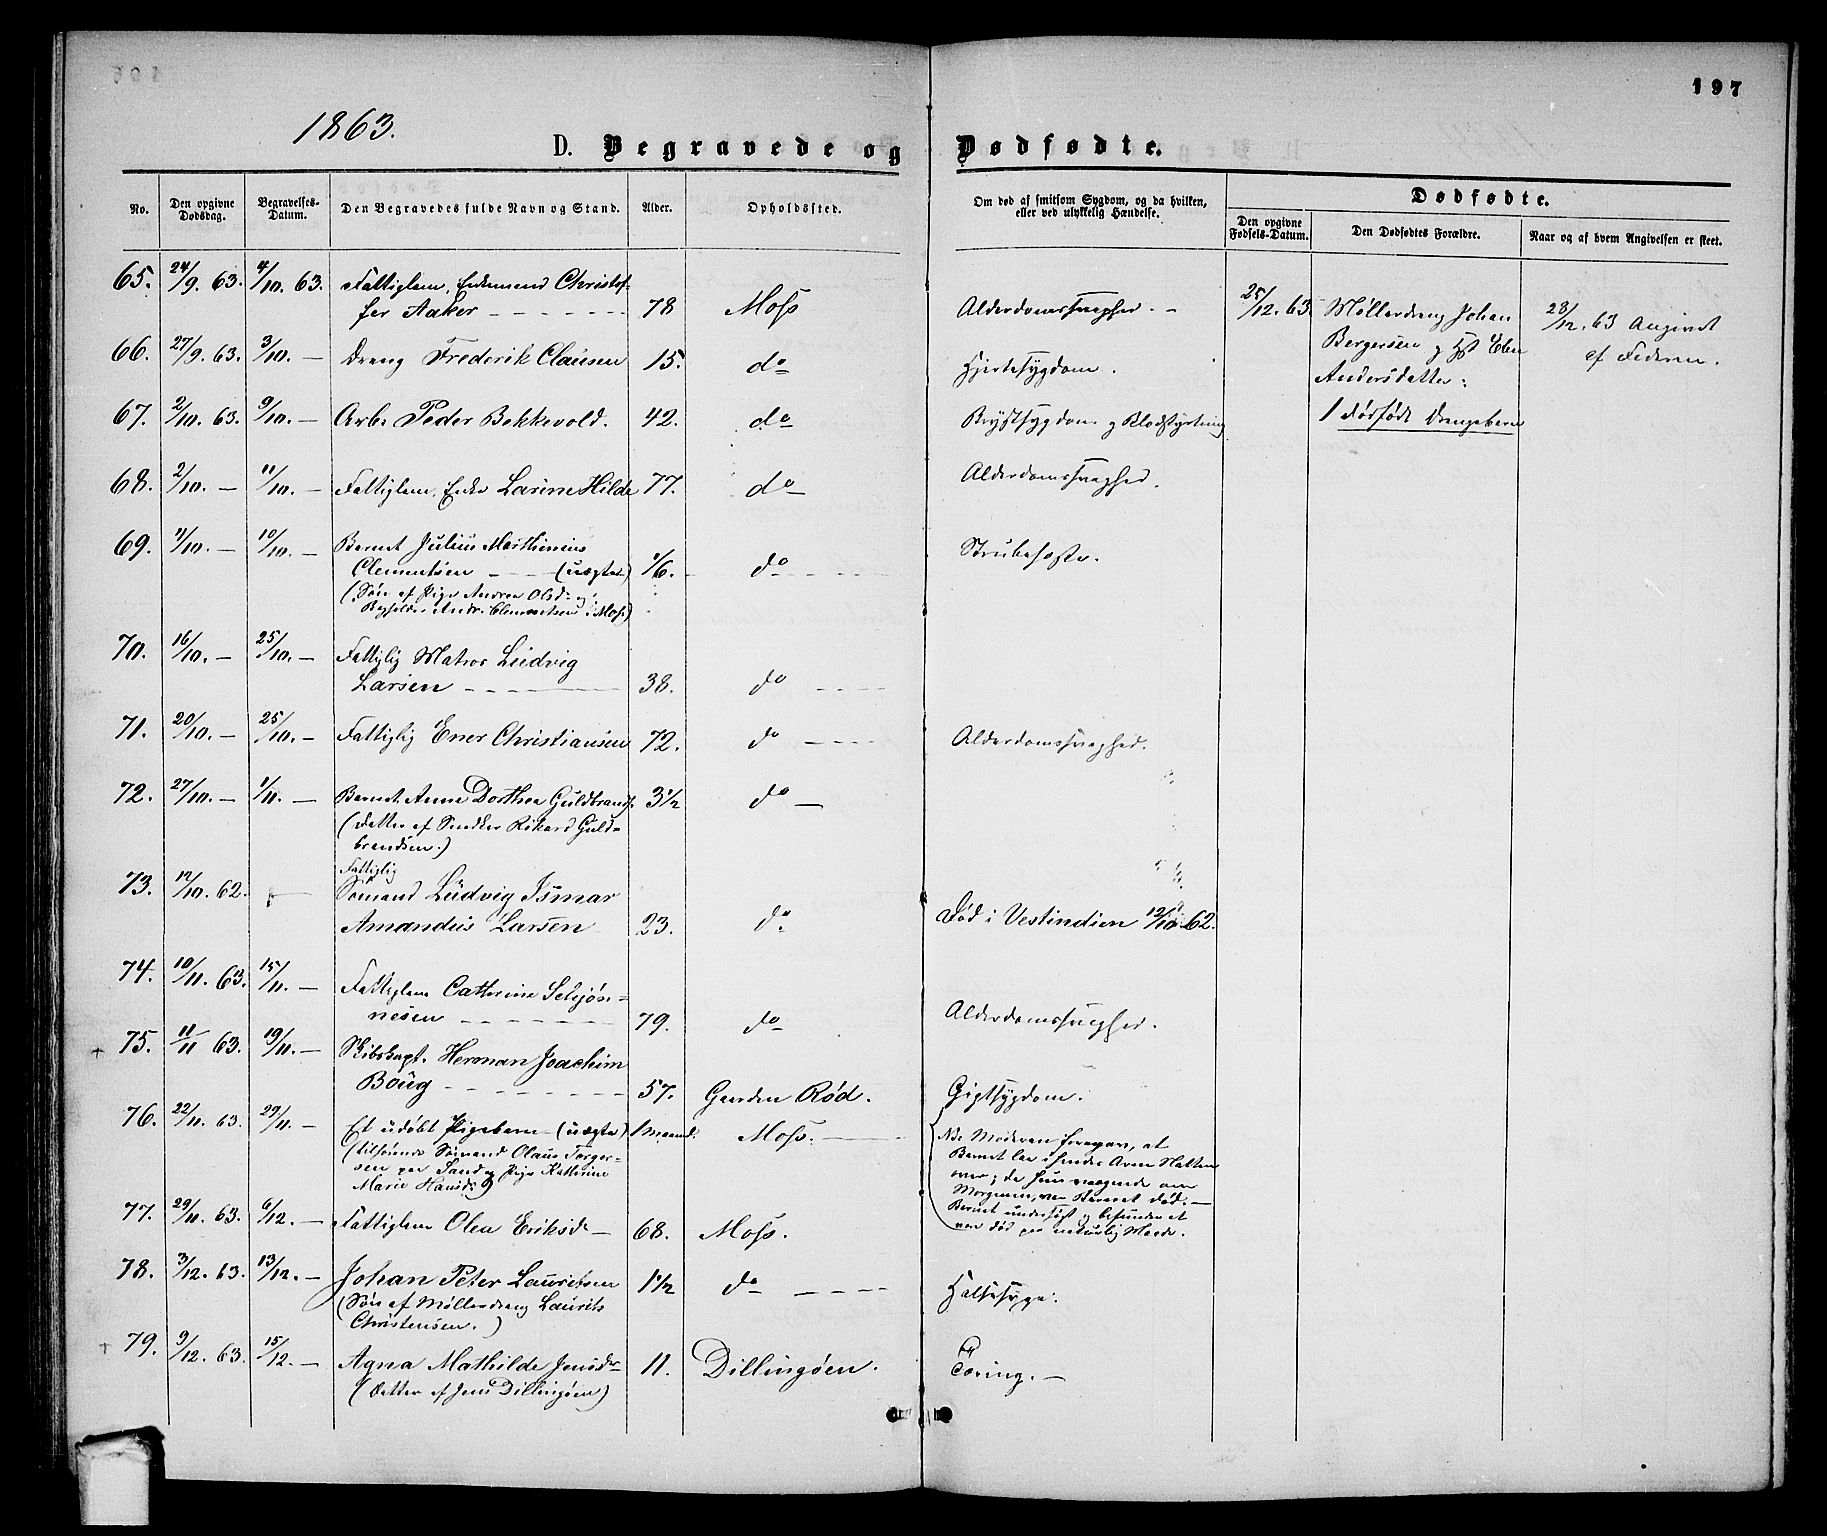 197
1863.
D. Begravede og Dødfødte.
No.
Den opgivne Dødsdag.
Begravelses-Datum.
Den Begravedes fulde Navn og Stand.
Alder.
Opholdssted.
Om død af smitsom Sygdom, og da hvilken, eller ved ulykkelig Hændelse.
Dødfødte.
Den opgivne Fødsels-Datum.
Den Dødfødtes Forældre.
Naar og af hvem Angivelsen er skeet.
65. 24/9. 63. 4/10. 63. Fattiglem, Enkemand Christof-
fer Aaker 78 Moss Alderdomssvaghed.
25/12. 63. Møllerdreng Johan
Bergersen og Hst Elen
Andersdatter:
1 Dødfødt Drengebarn
28/12. 63 Angivet
af Faderen.
66. 27/9. 63. 3/10. — Dreng Frederik Clausen 15. do Hjertesygdom.
67. 2/10. 63. 9/10. — Arb. Peder Bekkevold. 42. do Brystsygdom og Blodstyrtning
68. 2/10. — 11/10. — Fattiglem, Enke Larine Hilde 77. do Alderdomssvaghed.
69. 11/10. — 10/10. — Barnet Julius Marthinius
Clementsen (uægte) 1/6. do Strubehoste.
(Søn af Pige Andrea Olsd. og
Andr. Clementsen i Moss)
70. 16/10. — 25/10. — Fattiglig Matros Ludvig
Larsen 38. do
71. 20/10. — 25/10. — Fattiglig Ener Christiansen 72. do Alderdomssvaghed.
72. 27/10. — 1/11. — Barnet Anne Dorthea Guldbrands. 3 1/2 do —
(Datter af Snedker Rikard Guld-
brandsen.)
73. 12/10. 62. — Fattiglig
Sømand Ludvig Ismar
Amandus Larsen 23. do Død i Vestindien 12/10. 62.
74. 10/11. 63. 15/11. — Fattiglem Cathrine Selsjøn-
nesen 79. do Alderdomssvaghed.
+ 75. 11/11 63. 19/11. — Skibskapt. Herman Joachim
Boug 57. Gaarden Rød. Gigtsygdom.
76. 22/11. 63. 29/11. — Et udøbt Pigebarn (uægte) 1 maaned. Moss.
(tilhørende Sømand Olaus Torger-
sen paa Sand og Pige Kathrine
Marie Hansd.)
NB. Moderen foregav, at
Barnet laa i hendes Arm Natten
over; da hun vaagnede om
Morgenen, var Barnet død. —
Barnet undersøgt og befundet at
være død paa naturlig Maade.
77. 29/11. 63. 6/12. — Fattiglem Olea Eriksd. — 68. Moss.
78. 3/12. 63. 13/12. — Johan Peter Lauritsen 1 1/2 do Halssyge.
(Søn af Møllerdreng Laurits
Christensen.)
+ 79. 9/12. 63. 15/12. — Agna Mathilde Jensdr. 11. Dillingøen. Tæring. —
(Datter af Jens Dillingøen)